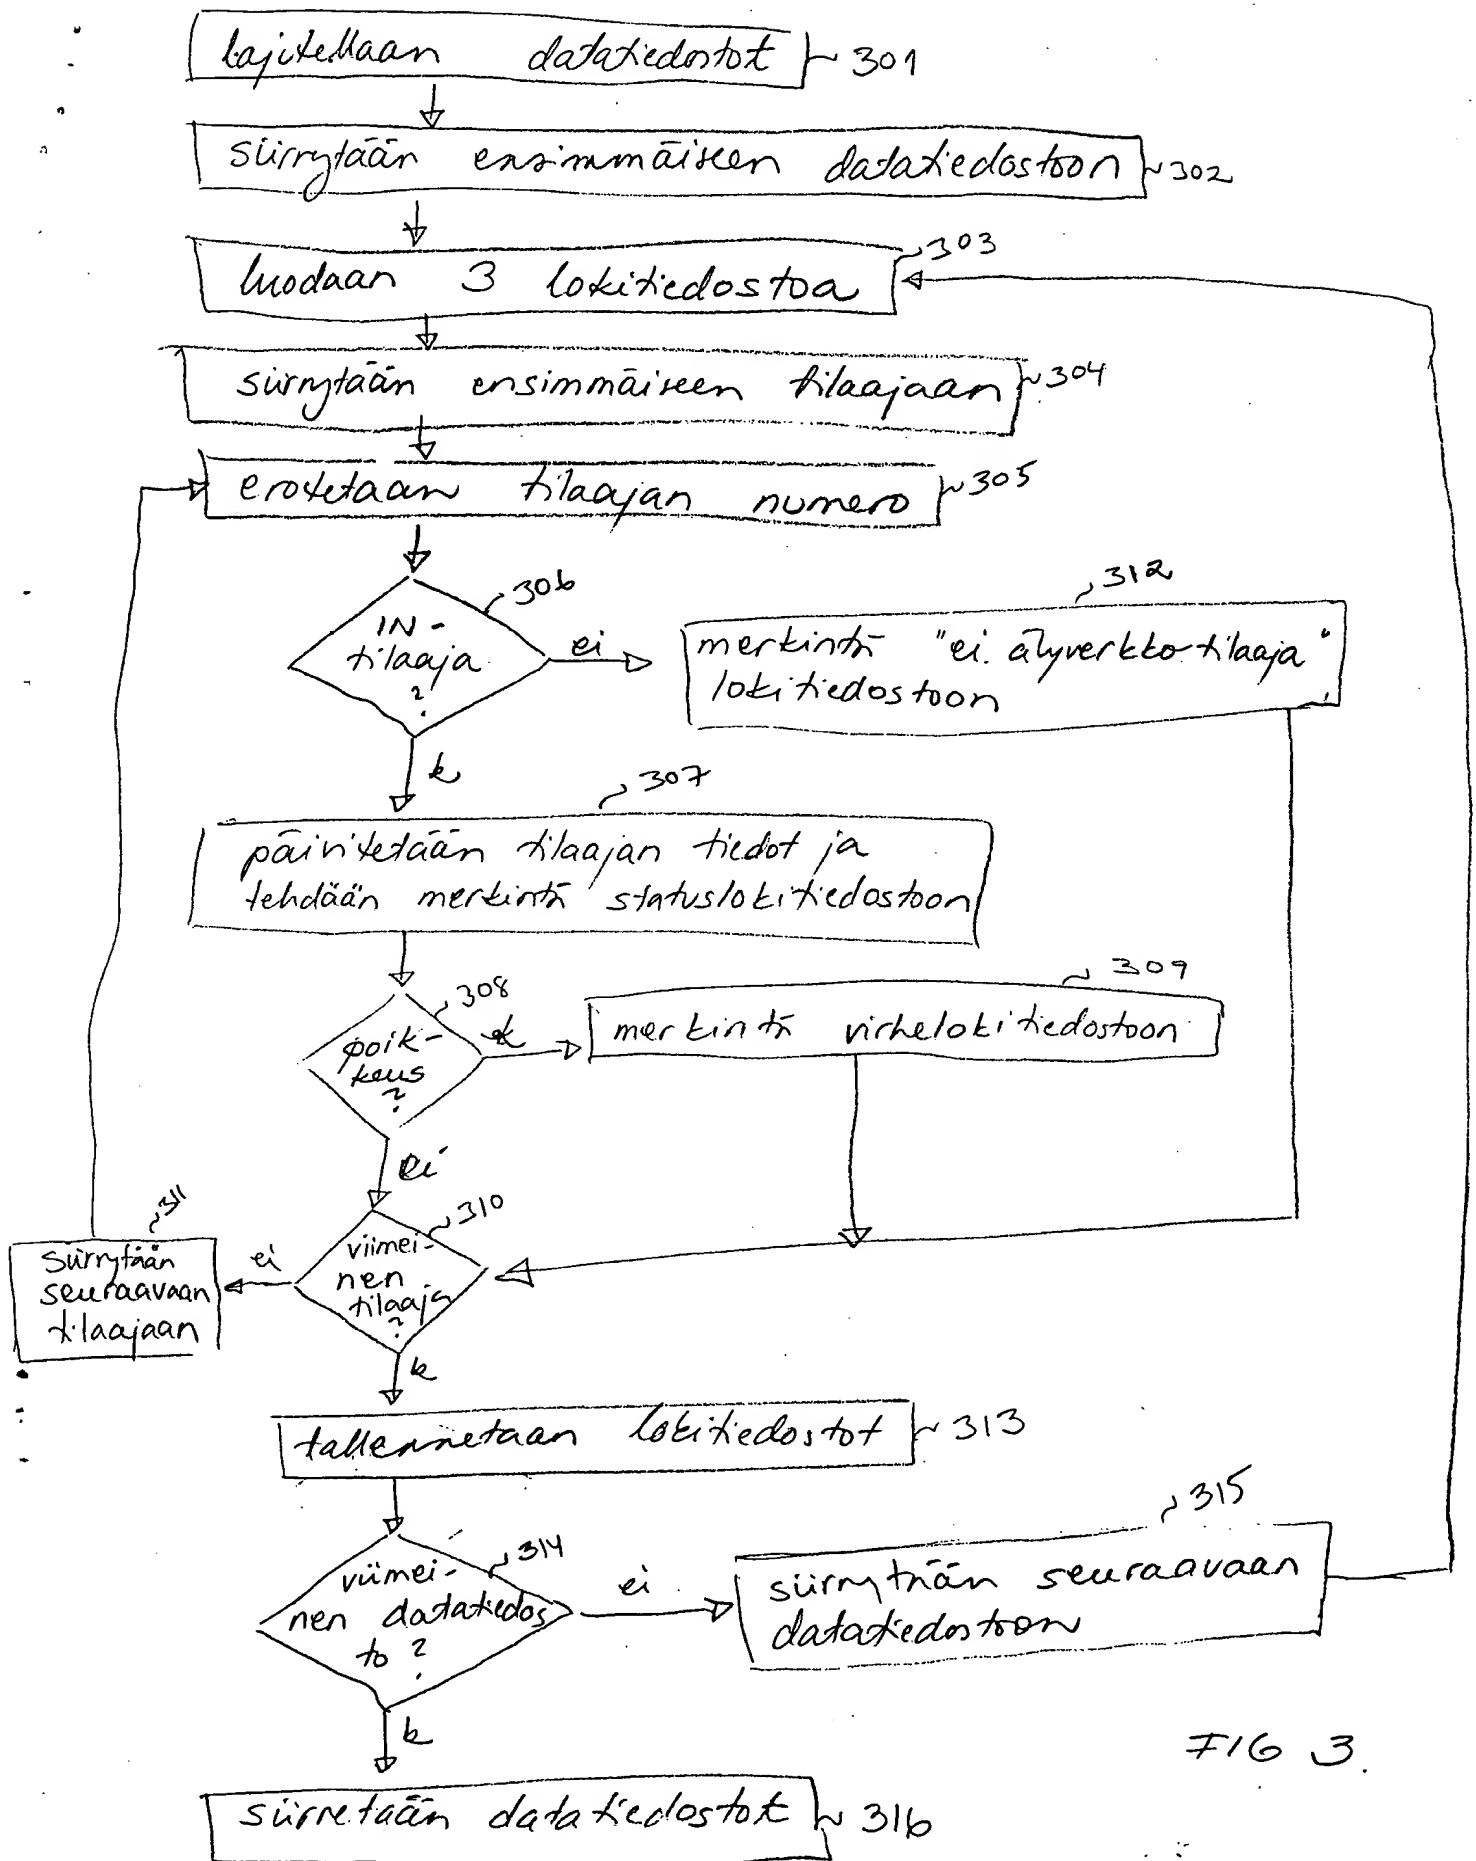 lajitellaan datatiedostot 301
siirrytään ensimmäiseen datatiedostoon 302
303
luodaan 3 lokitiedostoa
siirrytään ensimmäiseen tilaajaan 304
erotetaan tilaajan numero 305
306
IN-
tilaaja
?
ei
312
merkintä "ei älyverkkotilaaja"
lokitiedostoon
k
307
päivitetään tilaajan tiedot ja
tehdään merkintä statuslokitiedostoon
308
poik-
keus
?
k
309
merkintä virhelokitiedostoon
ei
310
viimei-
nen
tilaaja
?
ei
311
siirrytään
seuraavaan
tilaajaan
k
tallennetaan lokitiedostot 313
314
viimei-
nen datatiedos
to ?
ei
315
siirrytään seuraavaan
datatiedostoon
k
FIG 3.
siirretään datatiedostot 316